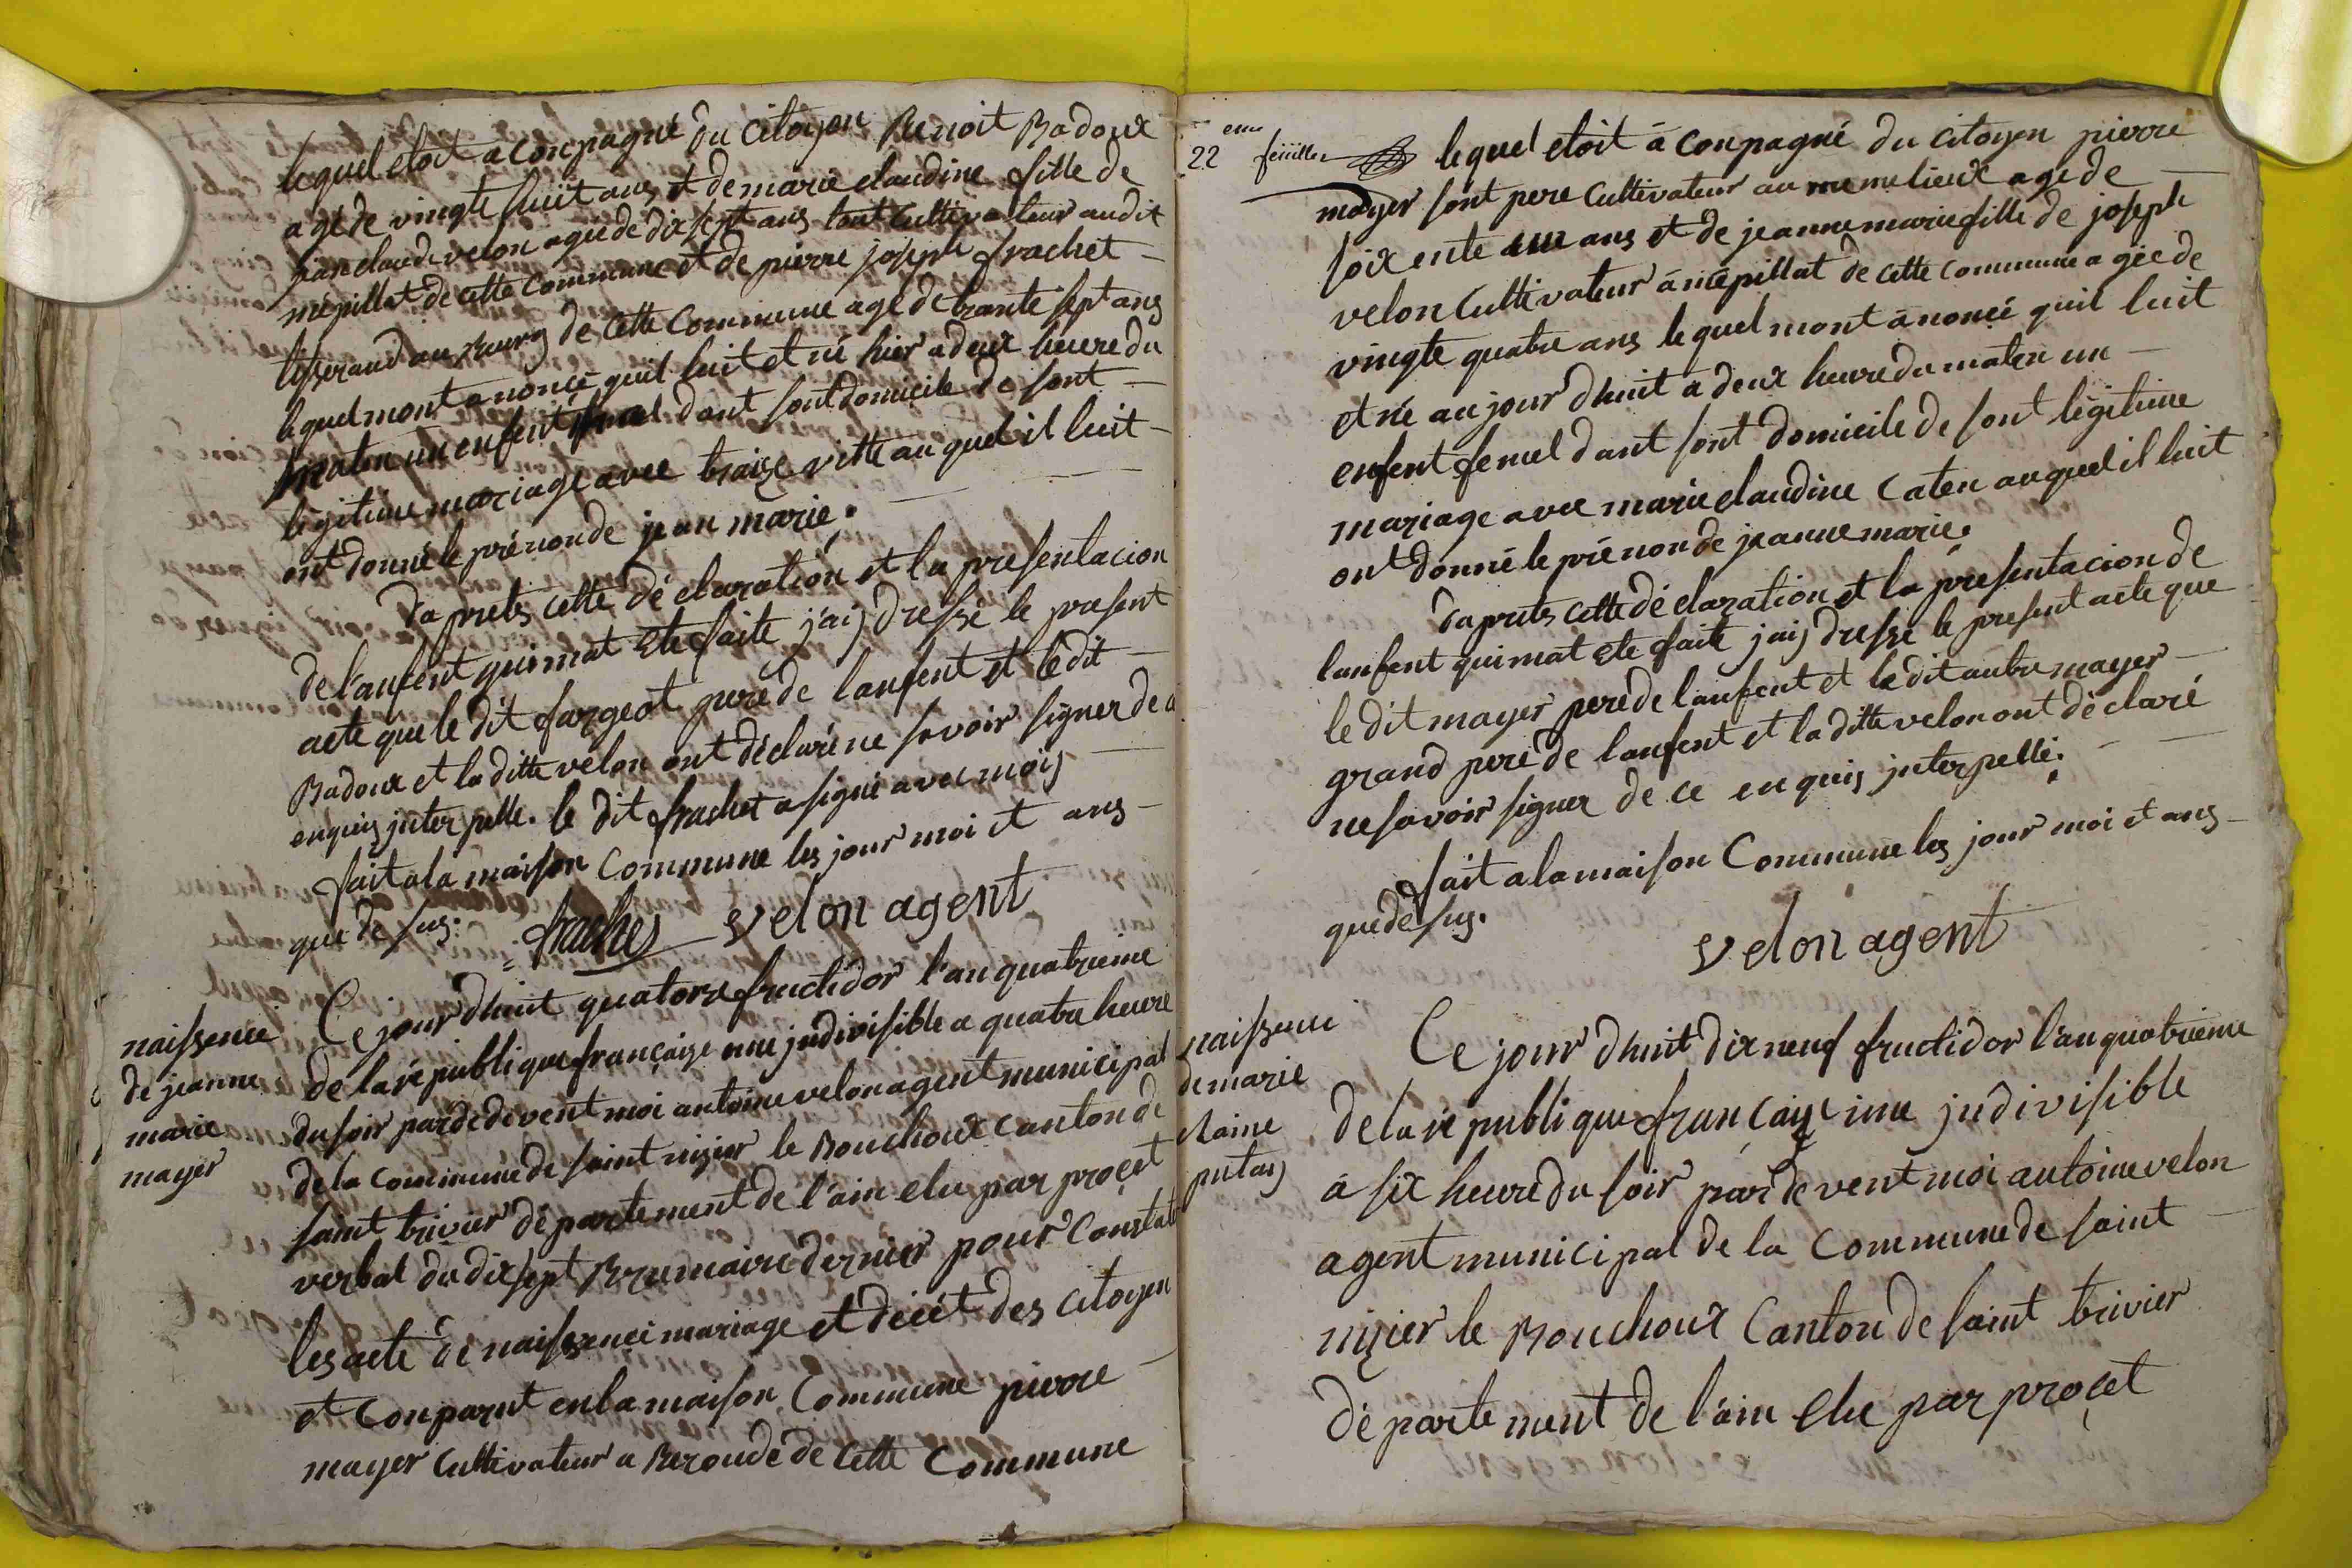 lequel etoit acompagné du Citoyen Benoit Badoux
agé de vingte huit ans et de marie claudine fille de
jean claude velon ageé de dix sept ans tout Cultivateur audit
mépillat de cette commune et de pierre joseph frachet
tisserand au Bourg de cette Commune agé de trante sept ans
lequel mont anoncé quil luit et né hier a deux heure du
matin un enfent mal dant sont domicile de sont
légitime mariage avec braize vitte au quel il luit
ont donné le prénon de jean marie.
daprets cette déclaration et la presentacion
de l'anfent qui mat ete faite j'aij dressé le present
acte que le dit fargeot pere de lanfent et le dit
Badoux et la ditte velon ont déclaré ne savoir signer de ce
enquis jnterpelle. le dit frachet a signé avec moij
fait a la maison Commune les jour moi et ans
que de sus. frachet velon agent
naissence
de jeanne
marie
mayer
Ce jour dhuit quatorze fructidor l'an quatrieme
de la république françaize une jndivisible a quatre heure
du soir par de devent moi antoine velon agent municipal
de la commune de saint nizier le Bouchoux canton de
saint trivier département de l'ain elu par procet
verbal du dix sept Brumaire dernier pour Constate
les acte de naissence mariage et décét des citoyen
et Conparut en la maison Commune pierre
mayer Cultivateur a Beroude de cette Commune
22 eme feuillet
lequel etoit aconpagné du citoyen pierre
mayer sont pere Cultivateur au meme lieux agé de
soixente ans et de jeanne marie fille de joseph
velon Cultivateur à mépillat de cette commune agée de
vingte quatre ans lequel mont anoncé quil luit
et né au jour dhuit a deux heure du maten un
enfent femel dant sont domicile de sont légitime
mariage avec marie claudine Caten auquel il luit
ont donné le prénon de jeanne marie.
daprets cette déclaration et la présentacion de
lanfent qui mat ete faite jaij dressé le present acte que
le dit mayer pere de lanfent et le dit autre mayer
grand pere de lanfent et la ditte velon ont déclaré
ne savoir signer de ce enquis jnterpellé.
fait a la maison Commune les jour moi et ans
que de sus.
velon agent
naissence
de marie
putaij
Ce jour dhuit dix neuf fructidor l'an quatrieme
de la république françaize une jndivisible
à six heure du soir par devent moi antoine velon
agent municipal de la Commune de saint
nizier le Bouchoux Canton de saint trivier
département de l'ain elu par procet